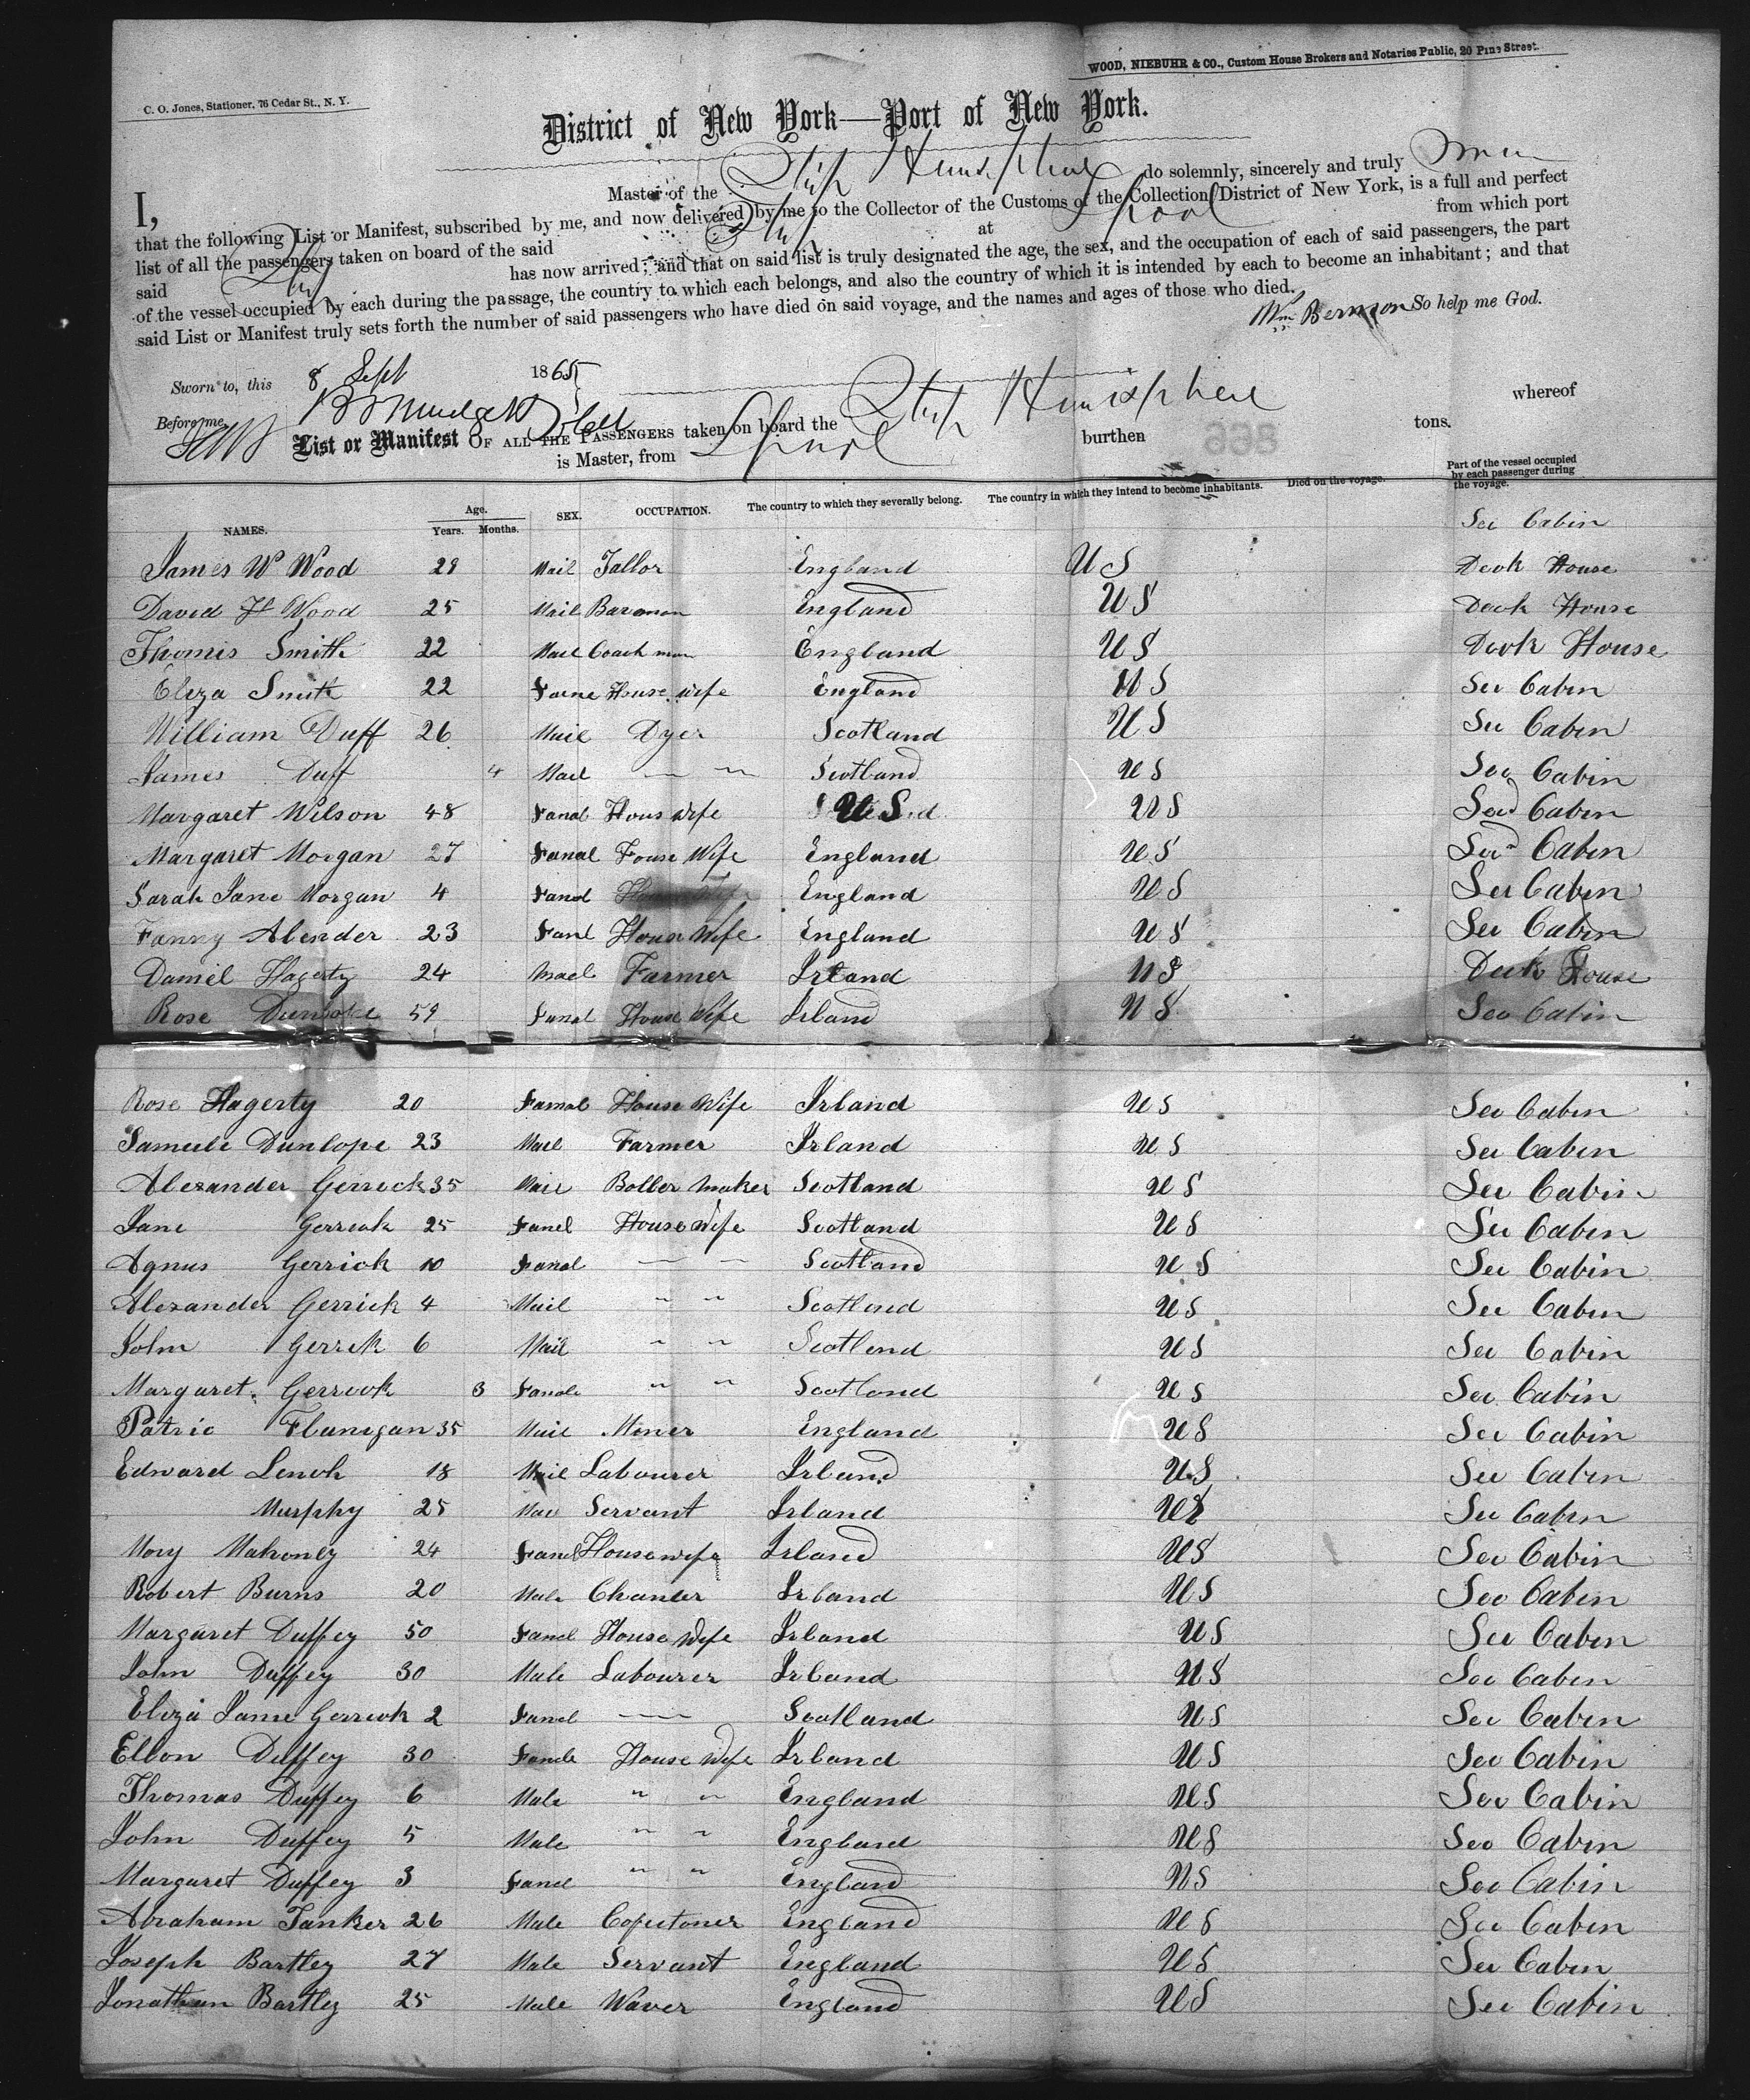 WOOD, NIEBUHR & CO., Custom House Brokers and Notaries Public, 20 Pine Street.
C. O. Jones, Stationer, 76 Cedar St., N. Y.
District of New York—Port of New York.
I, Master of the Ship Hemisphere do solemnly, sincerely and truly swear
that the following List or Manifest, subscribed by me, and now delivered by me to the Collector of the Customs of the Collection District of New York, is a full and perfect
list of all the passengers taken on board of the said Ship at Lpool from which port
said Ship has now arrived; and that on said list is truly designated the age, the sex, and the occupation of each of said passengers, the part
of the vessel occupied by each during the passage, the country to which each belongs, and also the country of which it is intended by each to become an inhabitant; and that
said List or Manifest truly sets forth the number of said passengers who have died on said voyage, and the names and ages of those who died.
So help me God.
Sworn to, this 8 Sept 1865
Before me,
List or Manifest OF ALL THE PASSENGERS taken on board the Ship Hemisphere whereof
is Master, from Lpool burthen 638 tons.
NAMES. Age. Years. Months. SEX. OCCUPATION. The country to which they severally belong. The country in which they intend to become inhabitants. Died on the voyage. Part of the vessel occupied by each passenger during the voyage.
Sec Cabin
James W Wood 29 Mail Tallor England US Deok House
David H Wood 25 Mail Bareman England US Deok House
Thomis Smith 22 Mail Coach man England US Deok House
Eliza Smith 22 Fame House wife England US Sec Cabin
William Duff 26 Mail Dyer Scotland US Sec Cabin
James Duff 4 Mail — — Scotland US Sec Cabin
Margaret Wilson 48 Famal Hous Wife US US Sec Cabin
Margaret Morgan 27 Famal House Wife England US Sec Cabin
Sarah Jane Morgan 4 Famal England US Sec Cabin
Fanny Alender 23 Faml House Wife England US Sec Cabin
Daniel Hagerty 24 Mael Farmer Irland US Deok House
Rose Dunlope 59 Famal House Wife Irland US Sec Cabin
Rose Hagerty 20 Famal House Wife Irland US Sec Cabin
Samuele Dunlope 23 Mael Farmer Irland US Sec Cabin
Alexander Gerrick 35 Mail Boller maker Scotland US Sec Cabin
Jane Gerrick 25 Famel House Wife Scotland US Sec Cabin
Agnus Gerrick 10 Famal — — Scotland US Sec Cabin
Alexander Gerrick 4 Mail " " Scotland US Sec Cabin
John Gerrick 6 Mail " " Scotland US Sec Cabin
Margaret Gerrick 3 Famale " " Scotland US Sec Cabin
Patric Flanigan 35 Mail Miner England US Sec Cabin
Edward Lench 18 Mail Labourer Irland US Sec Cabin
Murphy 25 Mae Servant Irland US Sec Cabin
Mory Mahoney 24 Famel House wife Irland US Sec Cabin
Robert Burns 20 Male Chanler Irland US Sec Cabin
Margaret Duffey 50 Famel House Wife Irland US Sec Cabin
John Duffey 30 Male Labourer Irland US Sec Cabin
Eliza Jame Gerrick 2 Famel — Scotland US Sec Cabin
Ellon Duffey 30 Famele House Wife Irland US Sec Cabin
Thomas Duffey 6 Male " " England US Sec Cabin
John Duffey 5 Male " " England US Sec Cabin
Margaret Duffey 3 Famel " " England US Sec Cabin
Abraham Tanker 26 Male England US Sec Cabin
Joseph Bartley 27 Male Servant England US Sec Cabin
Jonathan Bartley 25 Male Waver England US Sec Cabin